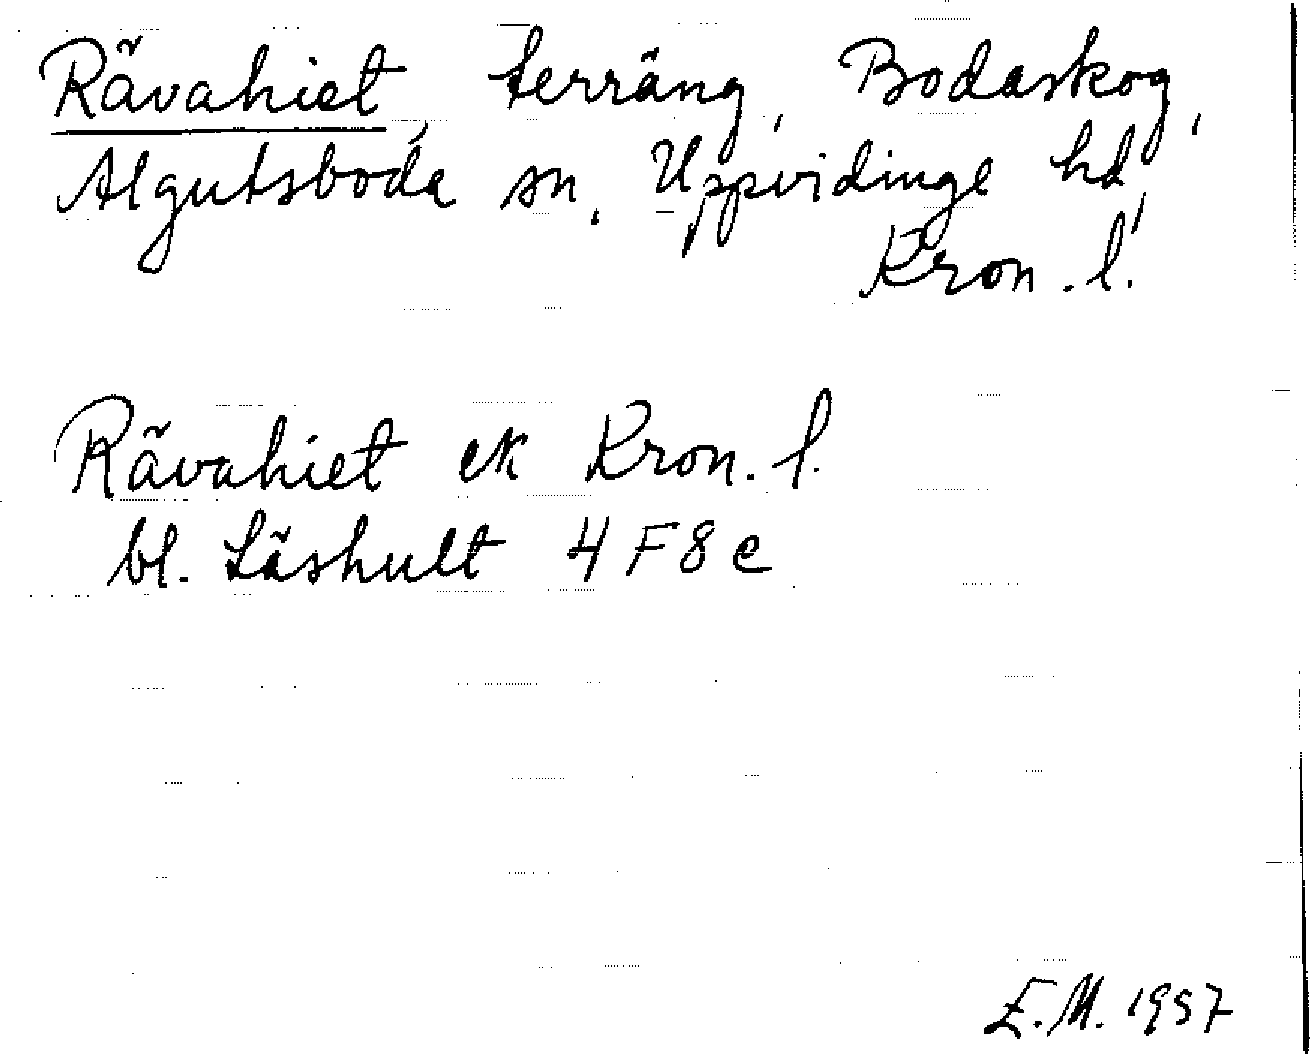 Rävahiet, terräng, Bodaskog,
Algutsboda sn, Uppvidinge hd,
Kron. l.
Rävahiet ek Kron. l.
bl. Läshult 4 F 8 e
E.M. 1957